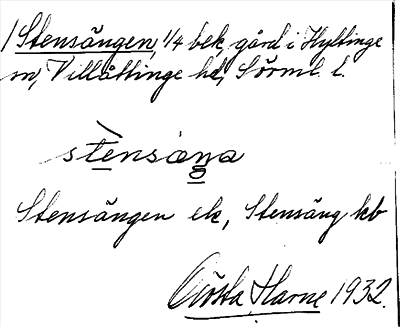 1 Stensängen, 1/4 bek, gård i Hyltinge
sn, Villåttinge hd, Sörml. l.
stensäŋa
Stensängen ek, Stensäng kb
Gösta Harne 1932.